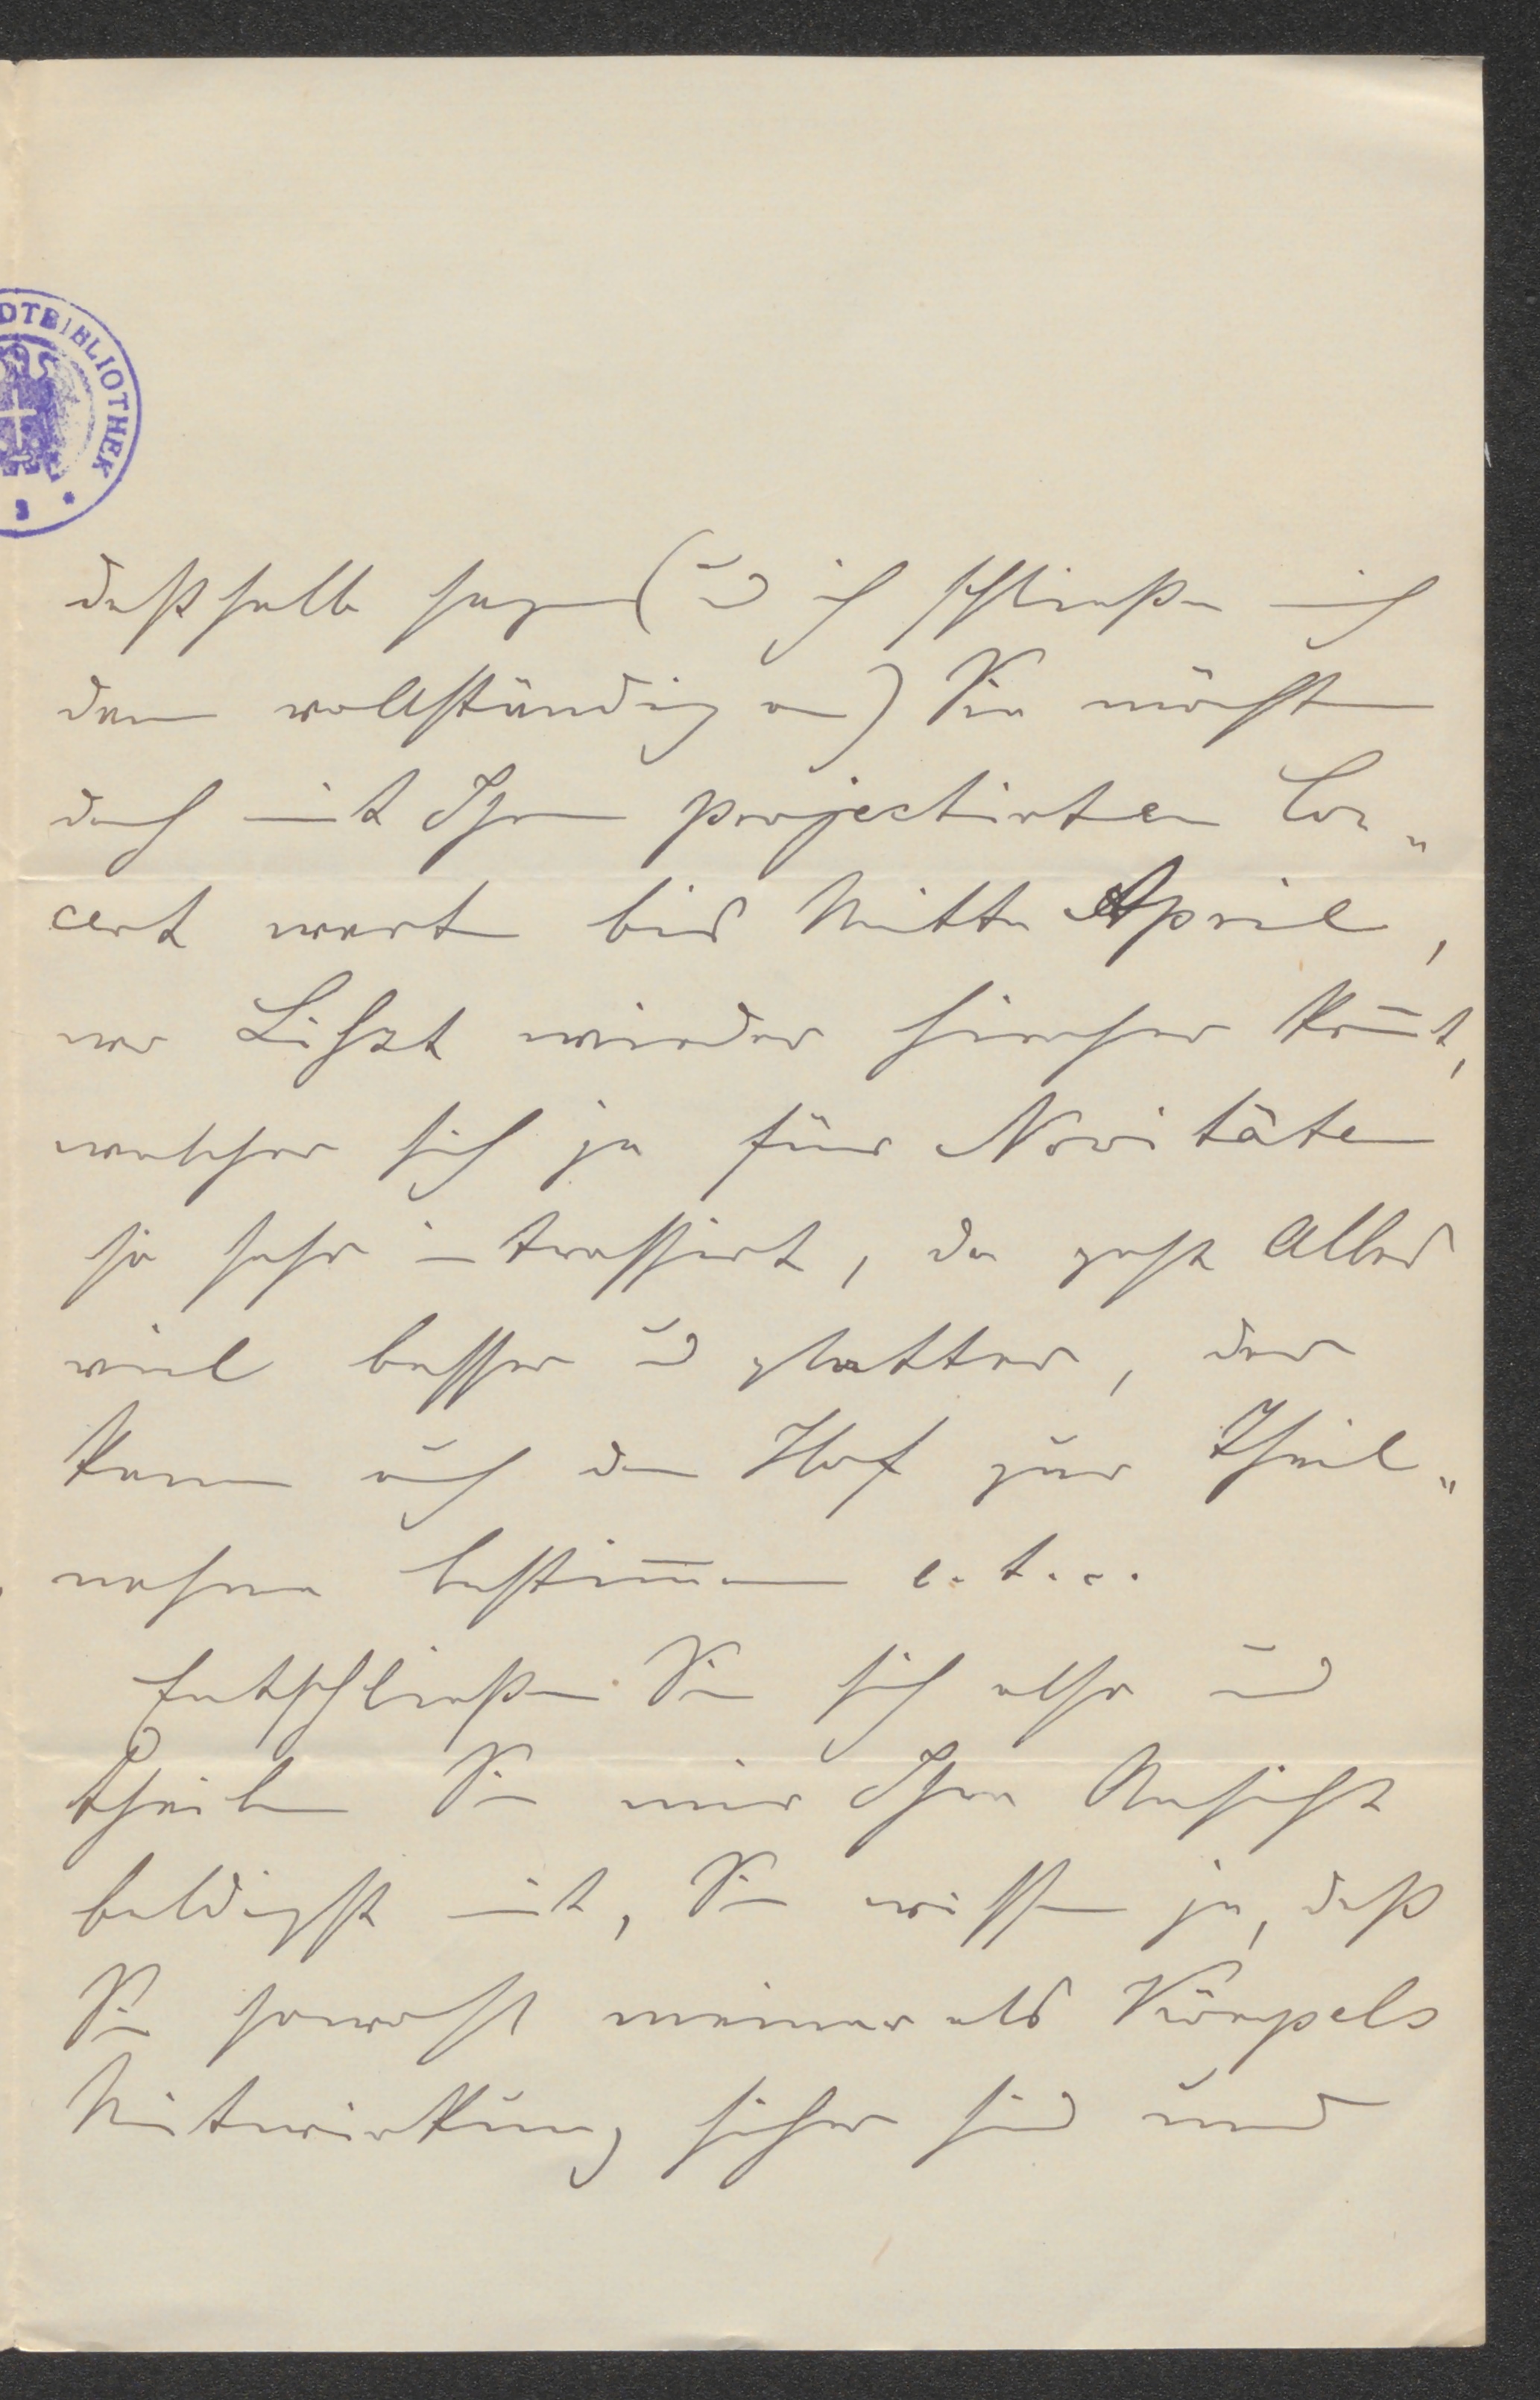 DTBIBLIOTHEK
deßhalb sagen (u ich schließe mich
dem vollständig an) Sie möchten
doch mit Ihrem projectirten Con„
cert warten bis Mitte April,
wo Lißzt wieder hierher kom̅t,
welcher sich ja für Novitäten
so sehr intressirt, da geht Alles
viel besser u glatter, der
kann auch den Hof zur Theil„
nahme bestim̅en e. t. c.
Entschließen Sie sich also und
theilen Sie mir Ihre Ansicht
baldigst mit, Sie wissen ja, daß
Sie sowohl meiner als Kömpels
Mitwirkung sicher sind und